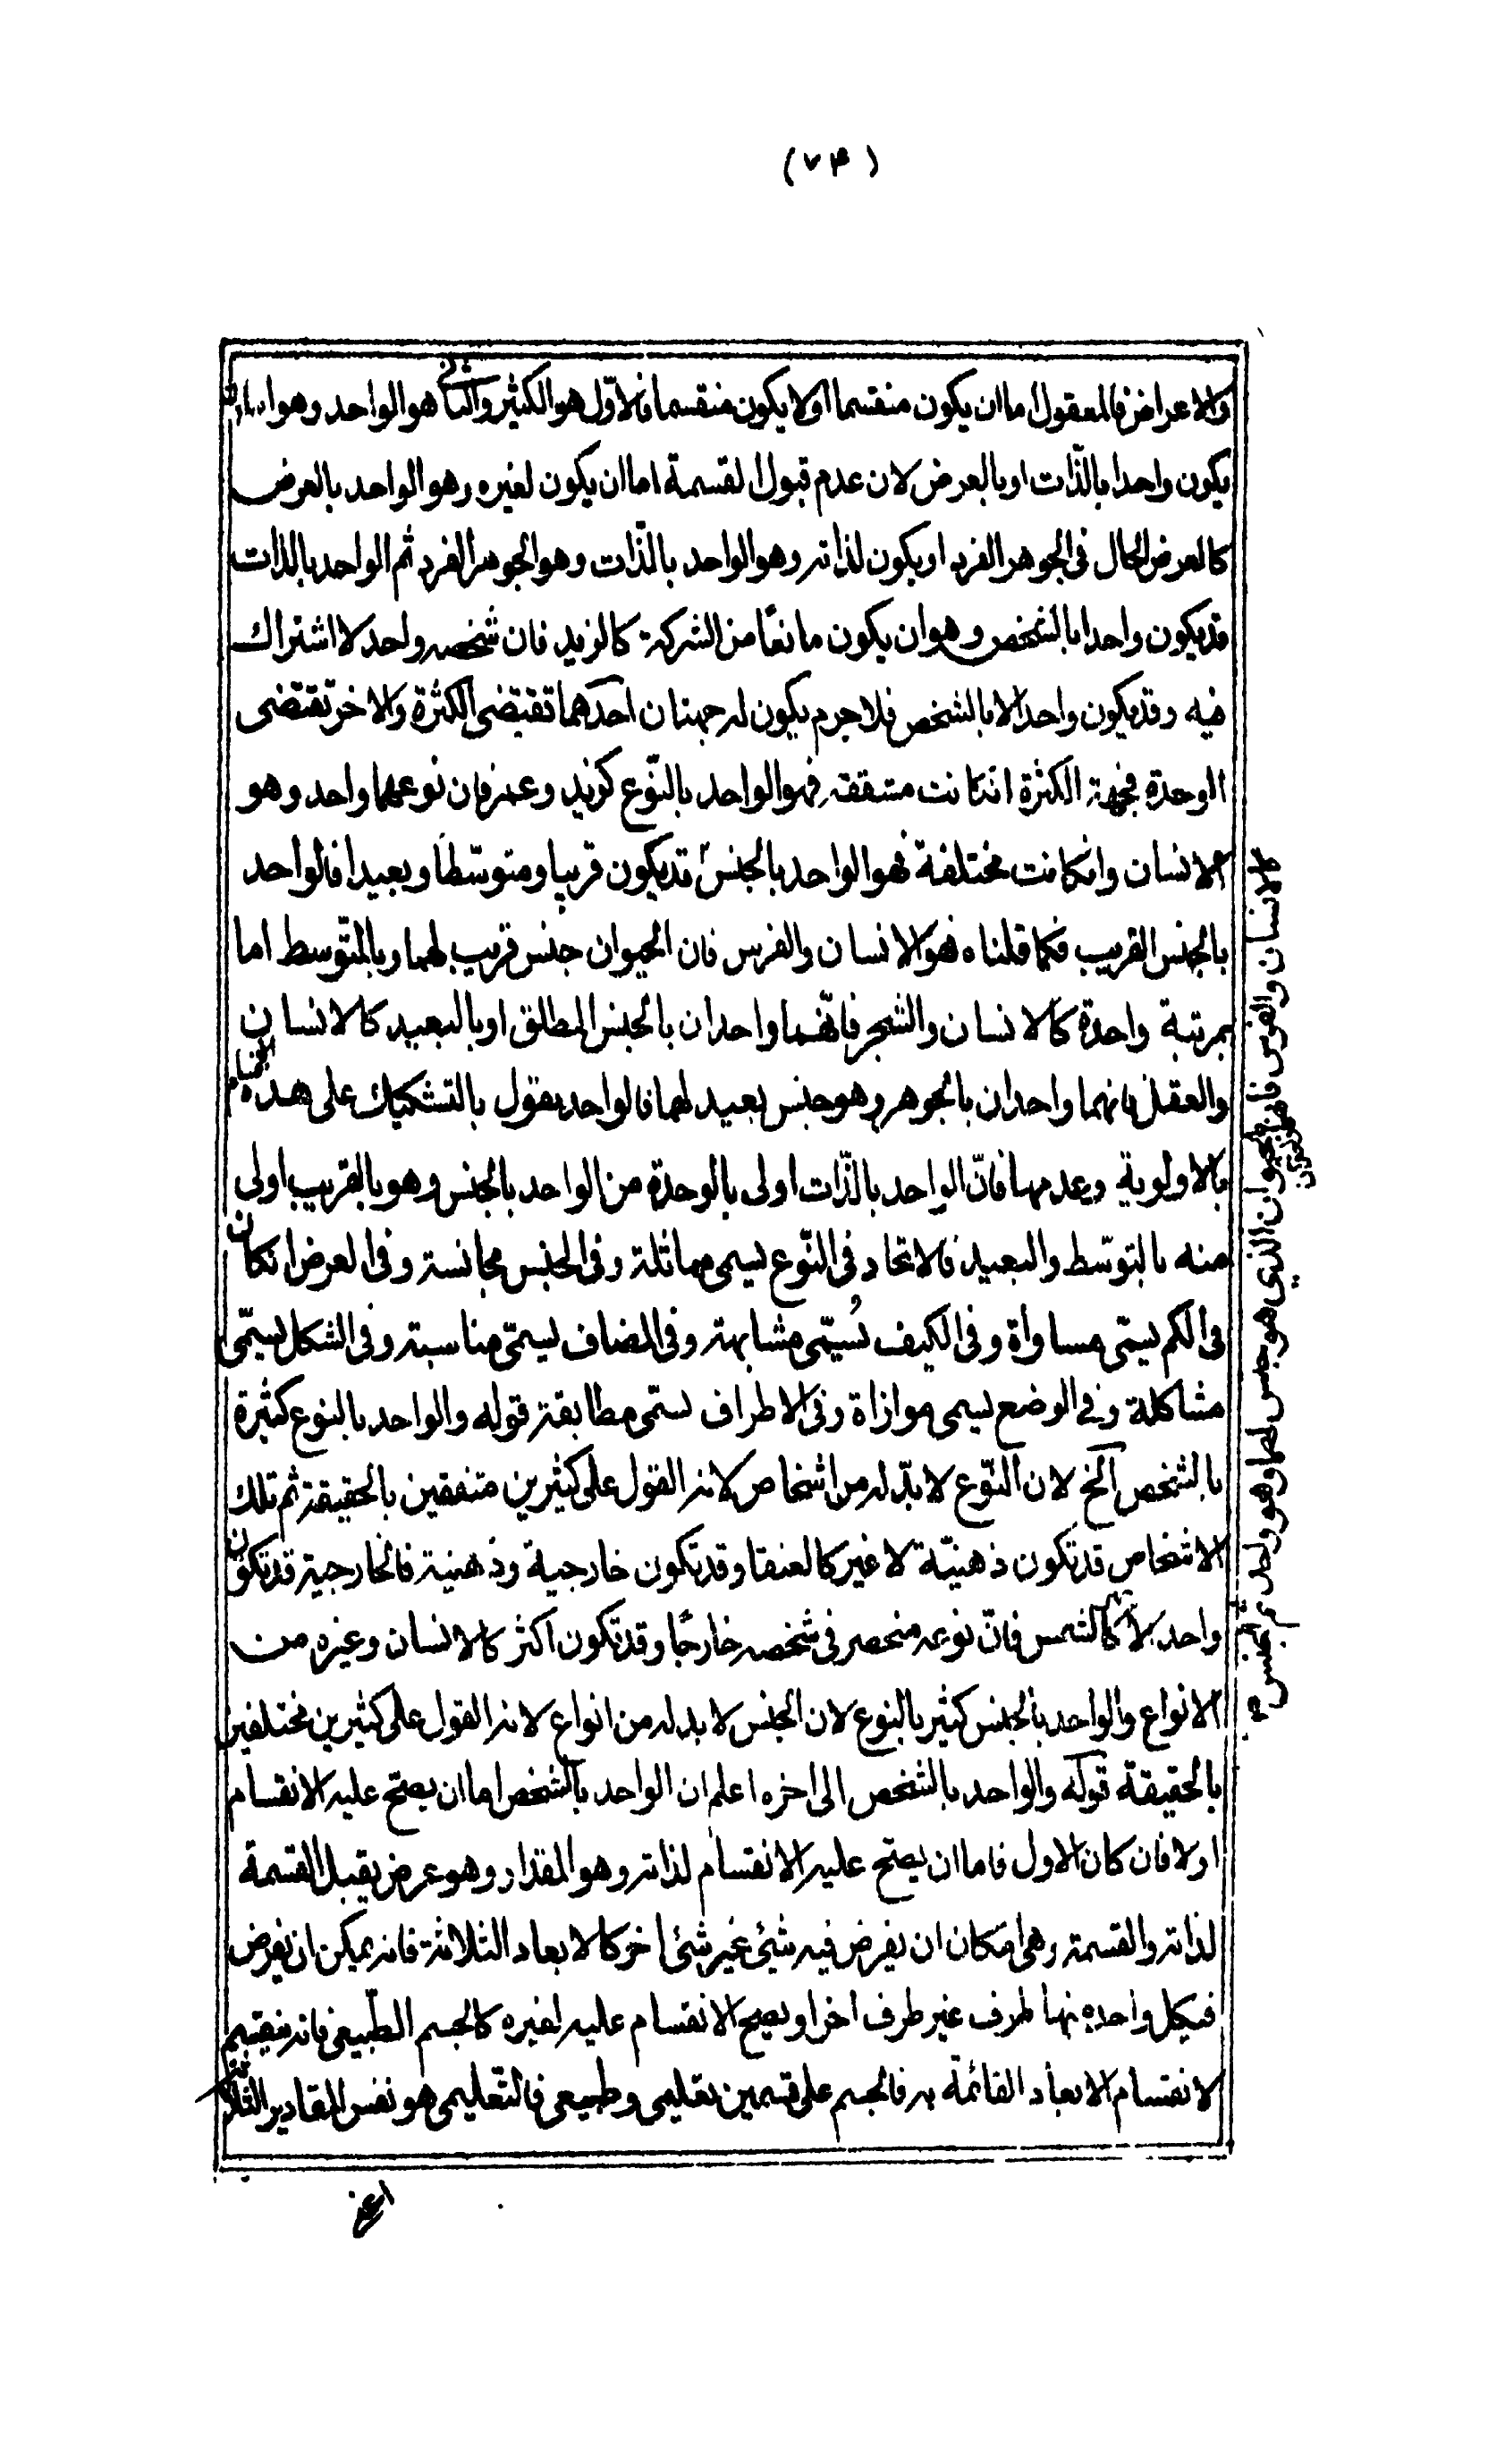 (٧٤)
والاعراض فالمعقول اما ان يكون منقسما او لا يكون منقسما فالاوّل هو الكثير والثانى هو الواحد وهو
يكون واحدا بالذّات او بالعرض لان عدم قبول القسمة اما ان يكون لغيره وهو الواحد بالعرض
كالعرض الحال فى الجوهر الفرد او يكون لذاته وهو الواحد بالذّات وهو الجوهر الفرد ثم الواحد بالذات
قد يكون واحدا بالشخص وهو ان يكون مانعًا من الشركة كالزيد فان شخصه واحد لا اشتراك
فيه وقد يكون واحدا لا بالشخص فلا جرم يكون له جهتان احدهما تقتضى الكثرة والاخر تقتضى
الوحدة فجهة الكثرة انكانت متفقة فهو الواحد بالنّوع كزيد وعمر فان نوعهما واحد وهو
الانسان وانكانت مختلفة فهو الواحد بالجنس قد يكون قريبا ومتوسّطا وبعيدا فالواحد
بالجنس القريب فكما قلناه فهو الانسان والفرس فان الحيوان جنس قريب لهما وبالمتّوسط اما
بمرتبة واحدة كالانسان والشجر فانّهما واحدان بالجنس المطلق او بالبعيد كالانسان
والعقل فانهما واحدان بالجوهر وهو جنس بعيد لهما فالواحد يقول بالتشكيك على هذه الاقسام
بالاولوية وعدمها فانّ الواحد بالذّات اولى بالوحدة من الواحد بالجنس وهو بالقريب اولى
منه بالتوسّط والبعيد فالاتحاد فى النّوع يسمى مماثلة وفى الجنس مجانسة وفى العرض انكان
فى الكم يسمّى مساواة وفى الكيف يُسمّى مشابهة وفى المضاف يسمّى مناسبة وفى الشكل يسمّى
مشاكلة وفى الوضع يسمى موازاة وفى الاطراف يسمّى مطابقة قوله والواحد بالنوع كثيرة
بالشخص الخ لان النّوع لا بدّ له من اشخاص لانه القول على كثيرين متفقين بالحقيقة ثم تلك
الاشخاص قد تكون ذهنيّة لا غير كالعنقا وقد تكون خارجية وذهنية فالخارجية قد تكون
واحد كالشمس فانّ نوعه منحصر فى شخصه خارجًا وقد تكون اكثر كالانسان وغيره من
الانواع والواحد بالجنس كثير بالنوع لان الجنس لا بد له من انواع لانه القول على كثيرين مختلفين
بالحقيقة قوله والواحد بالشخص الى اخره اعلم ان الواحد بالشخص اما ان يصحّ عليه الانقسام
او لا فان كان الاول فاما ان يصحّ عليه الانقسام لذاته وهو المقدار وهو عرض يقبل القسمة
لذاته والقسمة وهى امكان ان يفرض فيه شئ غير شئ اخر كالابعاد الثلاثة فانه يمكن ان يفرض
فى كل واحدة منها طرف غير طرف اخر او يصح الانقسام عليه لغيره كالجسم الطّبيعى فانه منقسم
لانقسام الابعاد القائمة به فالجسم على قسمين تعليمى وطبيعى فالتّعليمى هو نفس المقادير الثلاثة
كالانسان والفرس فانهما الحيوان الذي هو جنس لهما وهو واحد ثم الجنس